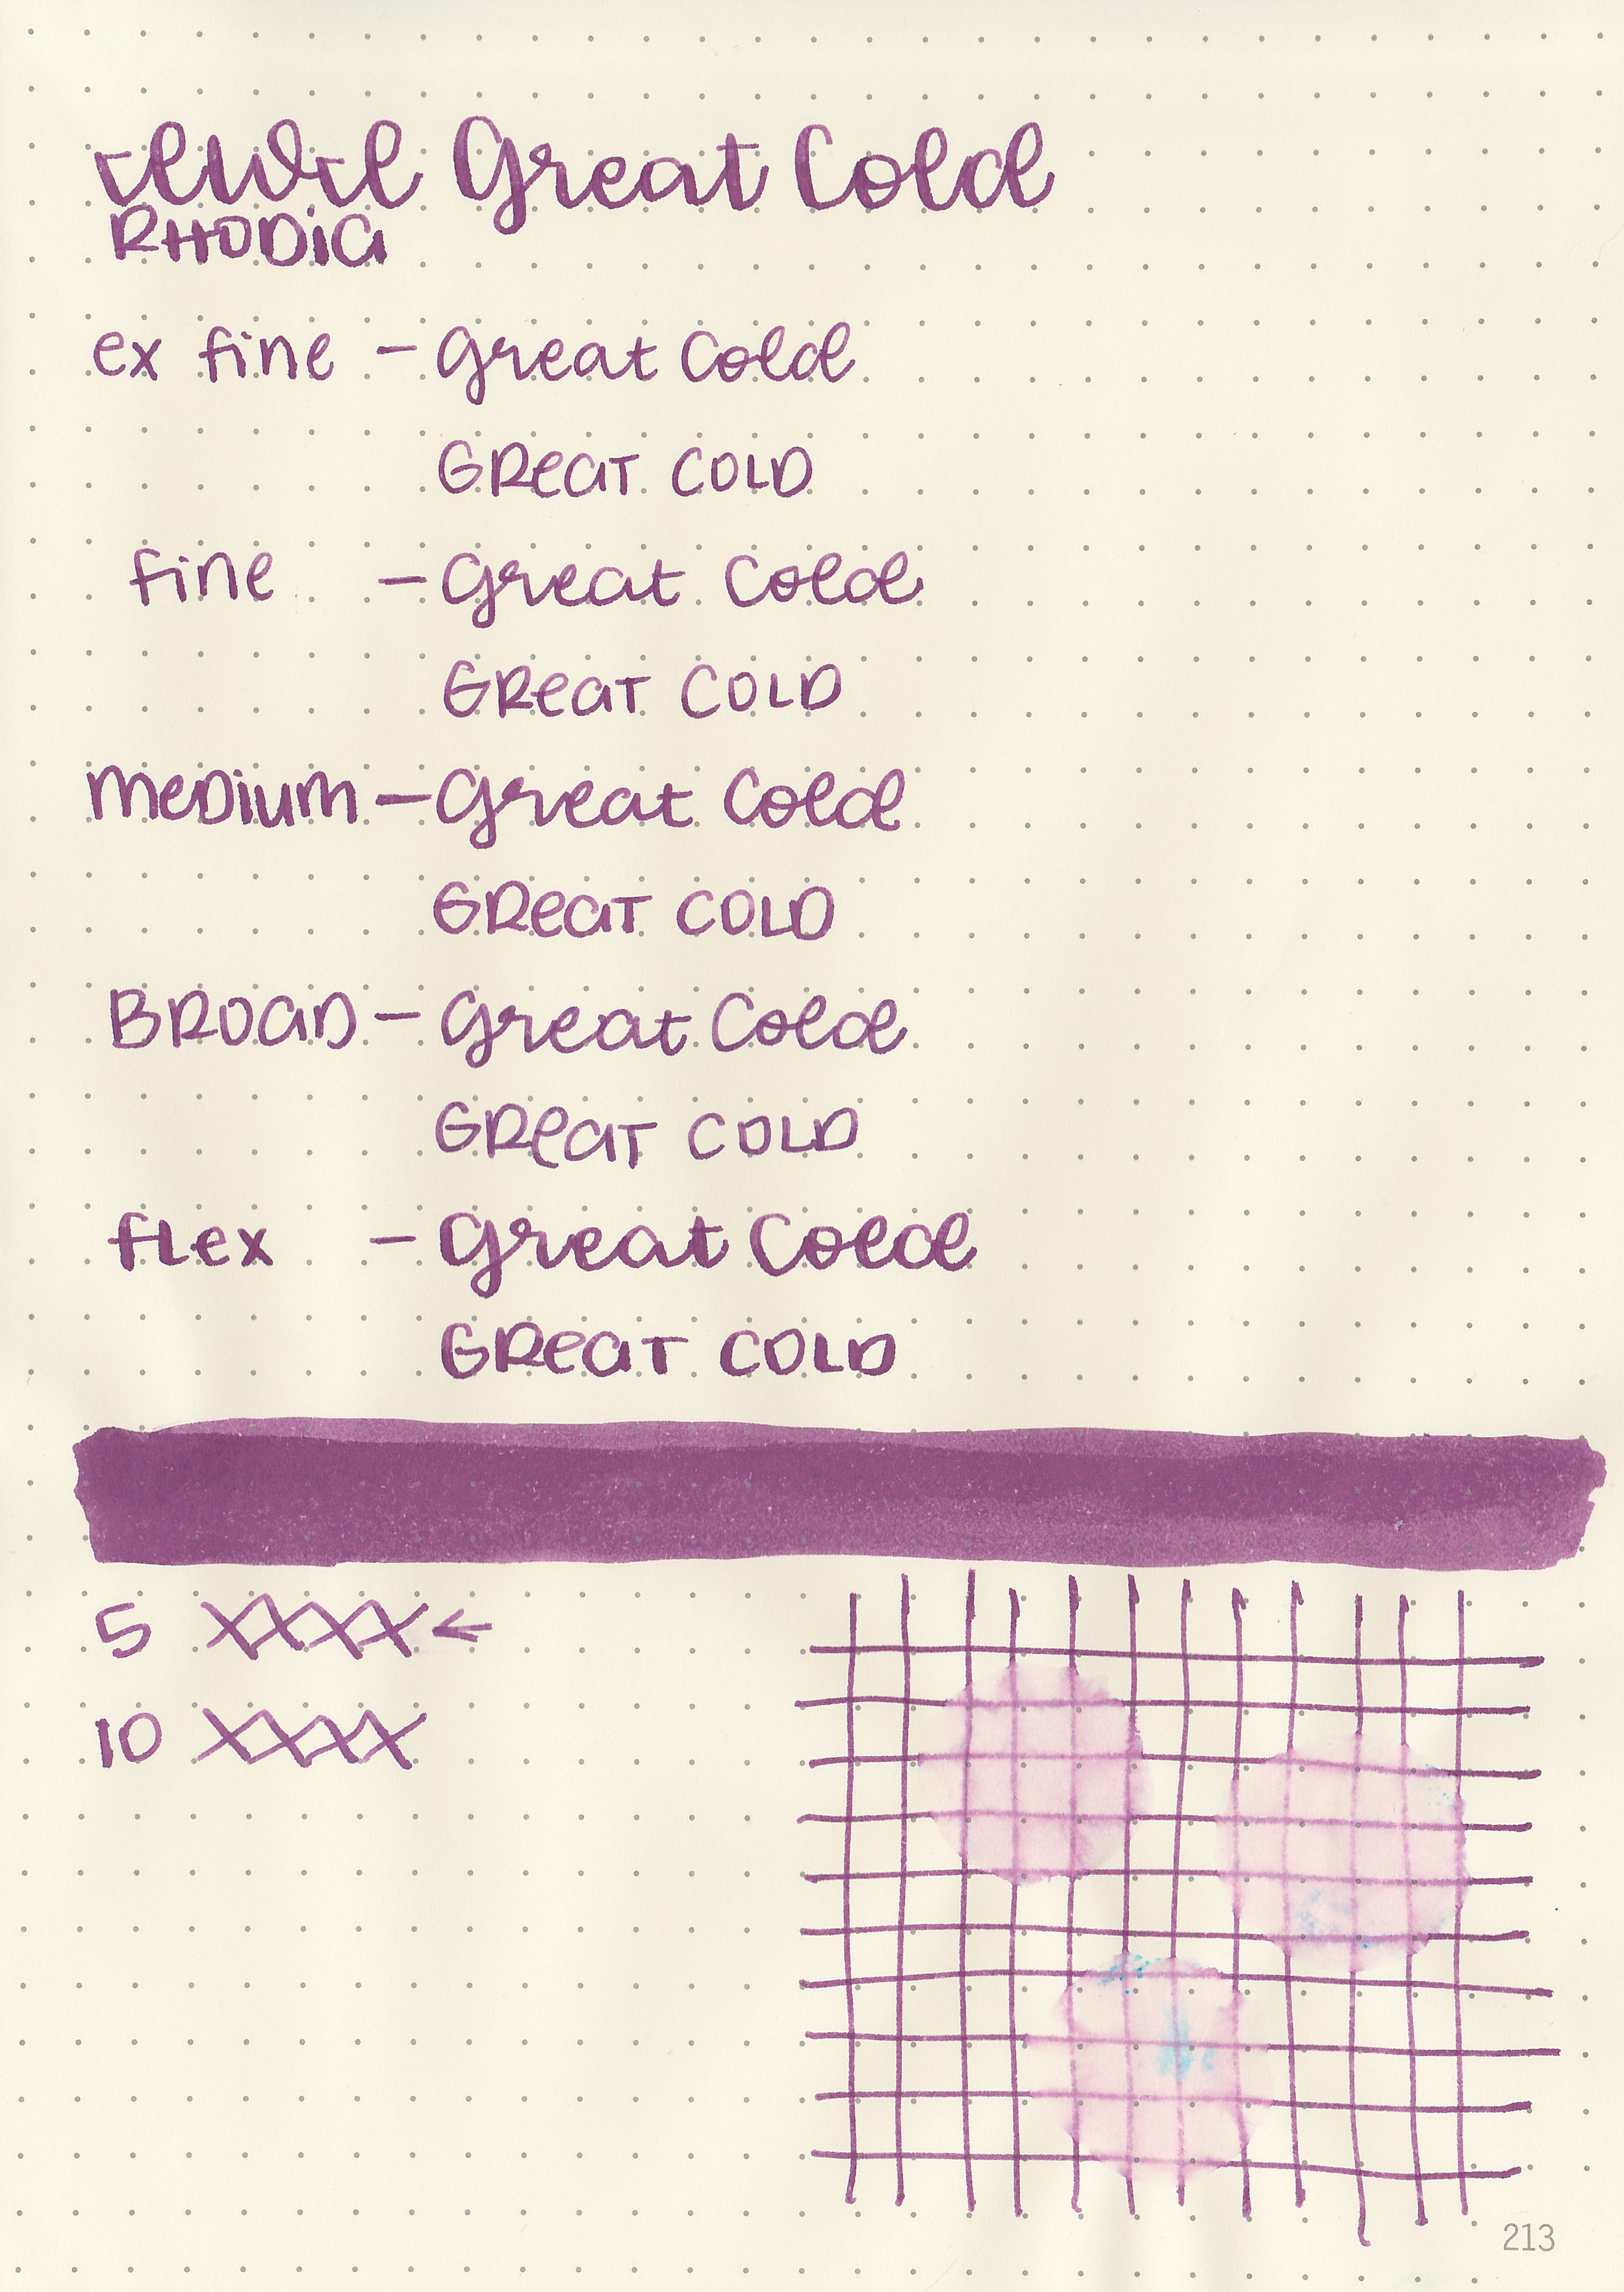 IWI Great Cold
RHODIA
ex fine – Great Cold
GREAT COLD
fine – Great Cold
GREAT COLD
MEDIUM – Great Cold
GREAT COLD
BROAD – Great Cold
GREAT COLD
FLEX – Great Cold
GREAT COLD
5 XXXX ←
10 XXXX
213